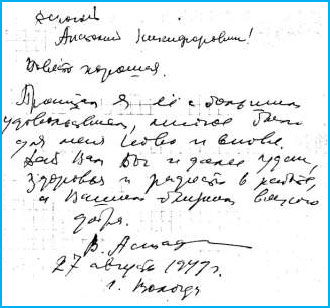 Дорогой
Анатолий Никифорович!
Повесть хорошая.
Прочитал я её с большим
удовольствием, многое было
для меня ново и внове.
Дай Вам Бог и далее удачи,
здоровья и радости в работе,
а Вашим близким всякого
добра.
В. Аста
27 августа 19 г.
г. Вологда